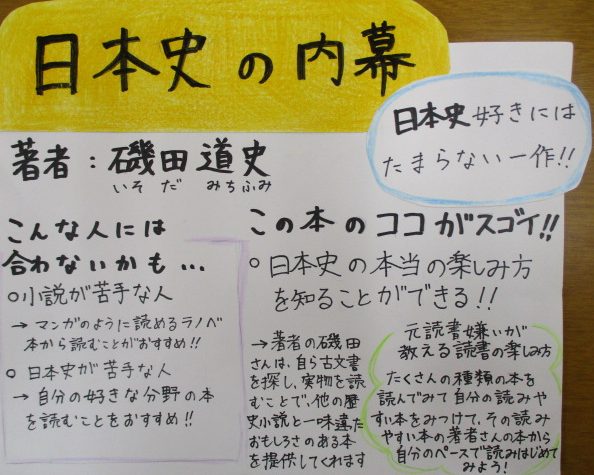 日本史の内幕
日本史好きには
たまらない一作!!
著者:磯田道史
いそだ みちふみ
こんな人には
合わないかも…
○小説が苦手な人
→マンガのように読めるラノベ
本から読むことがおすすめ!!
○日本史が苦手な人
→自分の好きな分野の本
を読むことをおすすめ!!
この本のココがスゴイ!!
○日本史の本当の楽しみ方
を知ることができる!!
→著者の磯田
さんは、自ら古文書
を探し、実物を読
むことで、他の歴
史小説と一味違た
おもしろさのある本
を提供してくれます
元読書嫌いが
教える読書の楽しみ方
たくさんの種類の本を
読んでみて自分の読みや
すい本をみつけて、その読み
やすい本の著者さんの本から
自分のペースで読みはじめて
みよう!